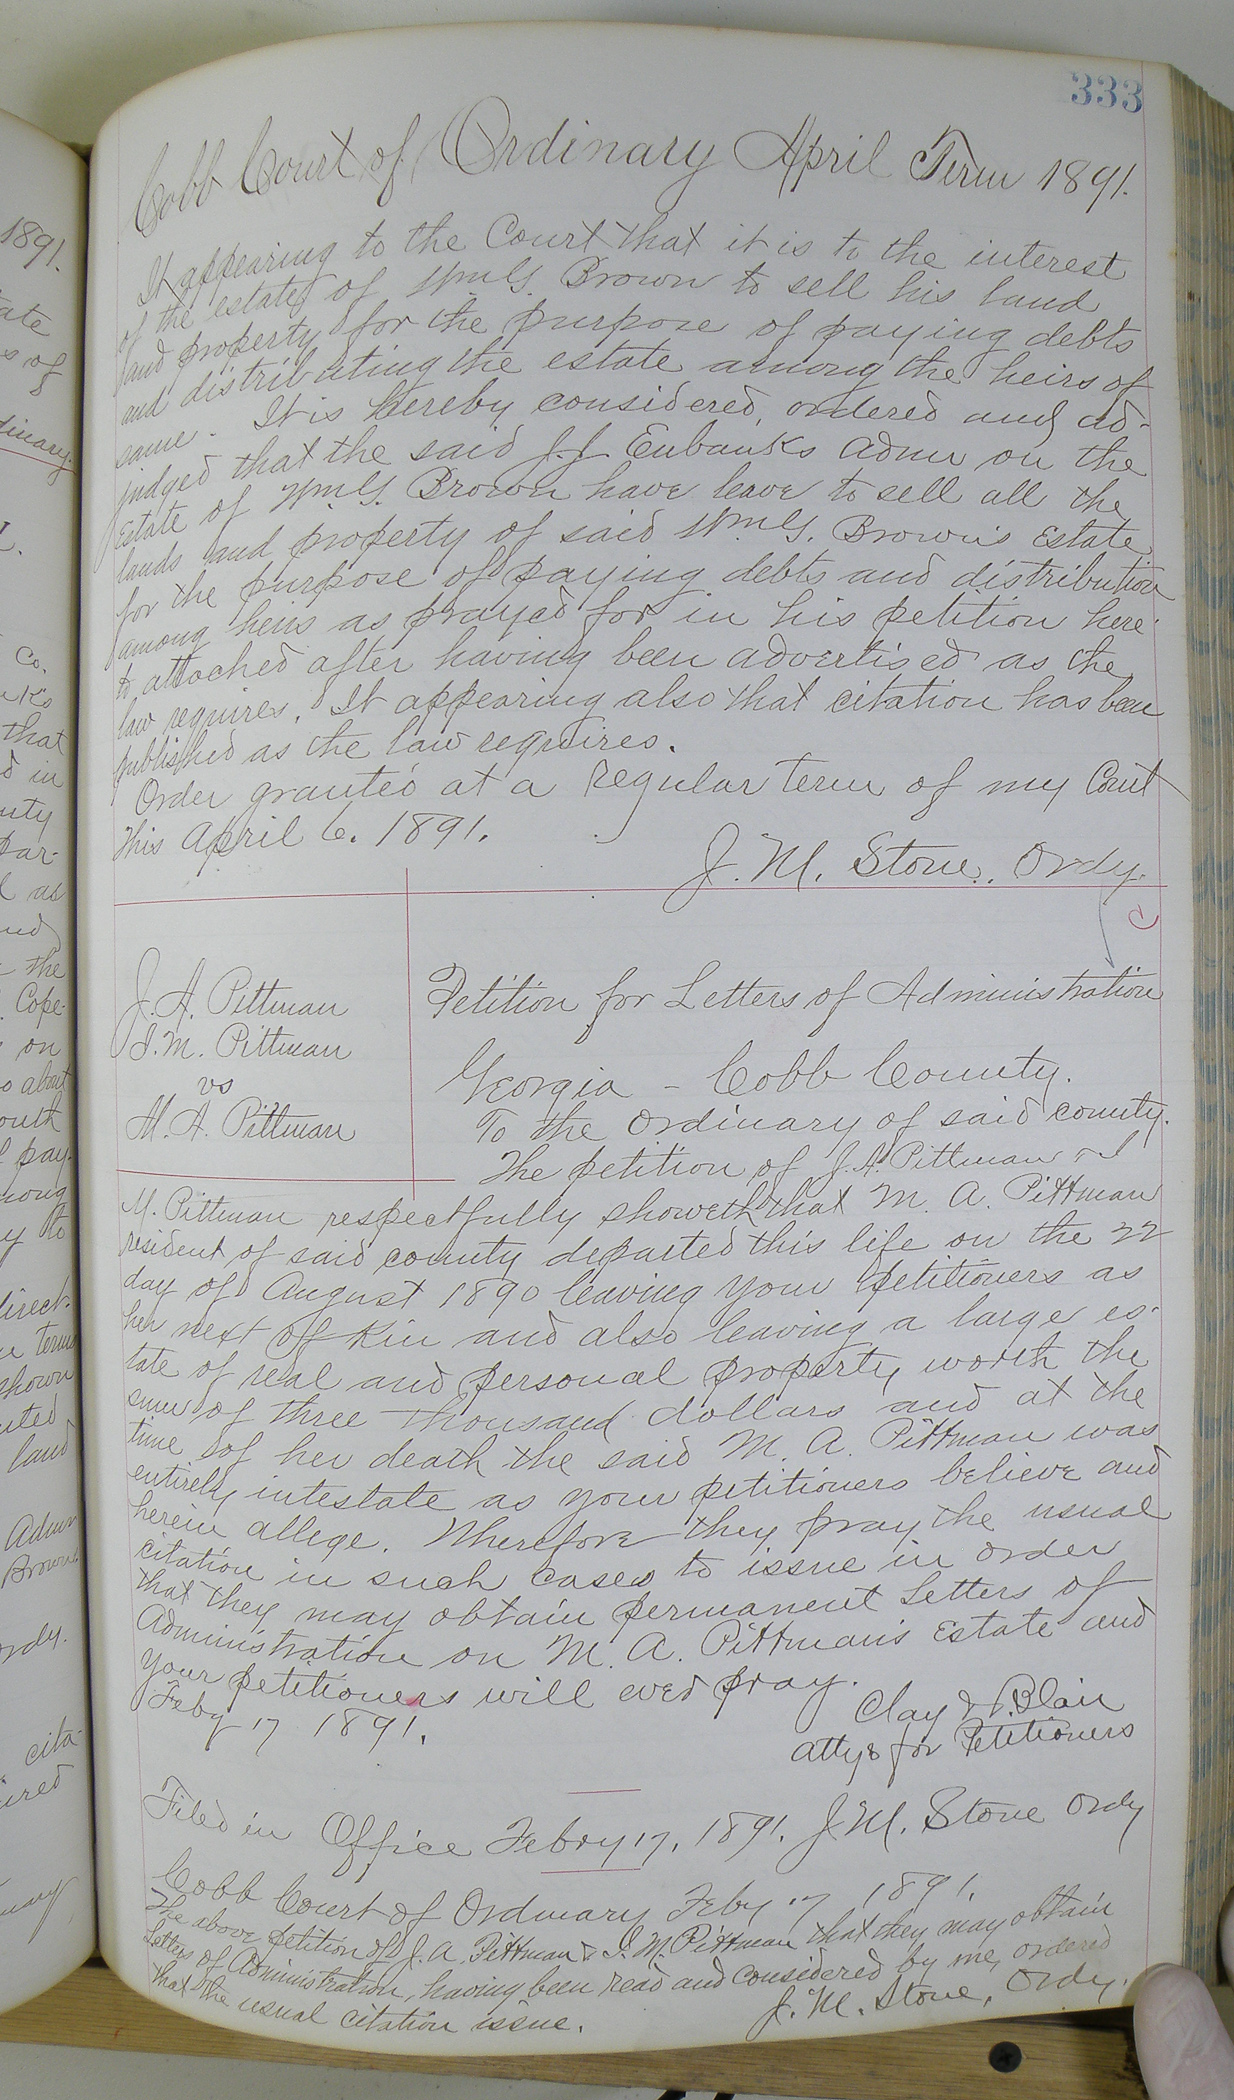 333
Cobb Court of Ordinary April Term 1891.
It appearing to the Court that it is to the interest
of the estate of Wm G. Brown to sell his land
and property for the purpose of paying debts
and distributing the estate among the heirs of
same. It is hereby considered, ordered and ad-
judged that the said J. J. Eubanks Admr on the
Estate of Wm G. Brown have leave to sell all the
lands and property of said Wm G. Brown's Estate
for the purpose of paying debts and distribution
among heirs as prayed for in his petition here-
to attached after having been advertised as the
law requires. It appearing also that citation has been
published as the law requires.
Order granted at a regular term of my Court
This April 6. 1891.
J. M. Stone, Ordy.
J. A. Pittman
I. M. Pittman
vs
M. A. Pittman
Petition for Letters of Administration
Georgia - Cobb County.
To the Ordinary of said county.
The petition of J. A. Pittman & I
M. Pittman respectfully showeth that M. A. Pittman
resident of said county departed this life on the 22
day of August 1890 leaving your petitioners as
her next of Kin and also leaving a large es-
tate of real and personal property worth the
sum of three thousand dollars and at the
time of her death the said M. A. Pittman was
entirely intestate as your petitioners believe and
herein allege. Wherefore they pray the usual
citation in such cases to issue in order
that they may obtain permanent Letters of
Administration on M. A. Pittman's Estate and
your petitioners will ever pray.
Feby 17 1891.
Clay & Blair
Attys for Petitioners
Filed in Office Febry 17, 1891. J. M. Stone Ordy
Cobb Court of Ordinary Feby 17 1891.
The above petition of J. A. Pittman & I. M. Pittman that they may obtain
Letters of Administration, having been read and considered by me, ordered
that the usual citation issue.
J. M. Stone, Ordy.
1891.